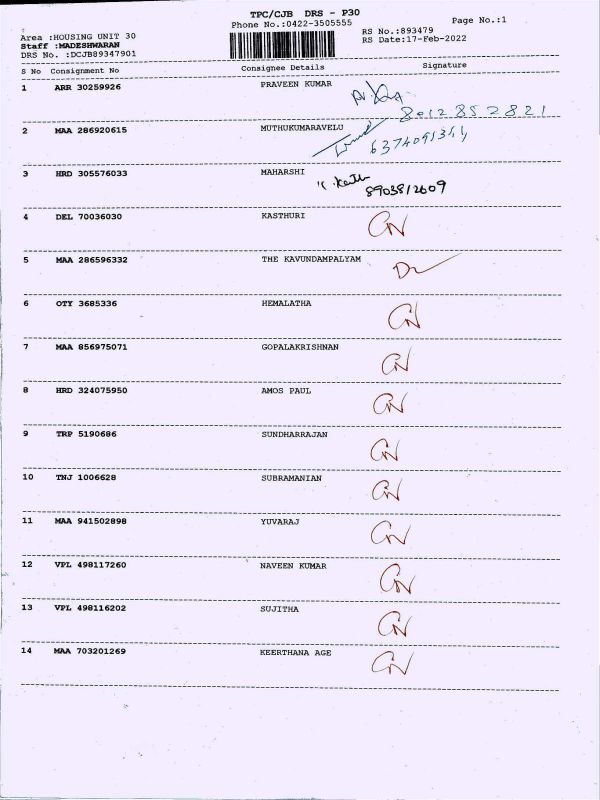 TPC/CJB DRS - P30
Phone No.:0422-3505555
Page No.:1
Area :HOUSING UNIT 30
Staff :MADESHWARAN
DRS No. :DCJB89347901
RS No.:893479
RS Date:17-Feb-2022
S No Consignment No Consignee Details Signature
1 ARR 30259926 PRAVEEN KUMAR
8012852821
2 MAA 286920615 MUTHUKUMARAVELU
3 HRD 305576033 MAHARSHI
8903812609
4 DEL 70036030 KASTHURI
5 MAA 286596332 THE KAVUNDAMPALYAM
6 OTY 3685336 HEMALATHA
7 MAA 856975071 GOPALAKRISHNAN
8 HRD 324075950 AMOS PAUL
9 TRP 5190686 SUNDHARRAJAN
10 TNJ 1006628 SUBRAMANIAN
11 MAA 941502898 YUVARAJ
12 VPL 498117260 NAVEEN KUMAR
13 VPL 498116202 SUJITHA
14 MAA 703201269 KEERTHANA AGE